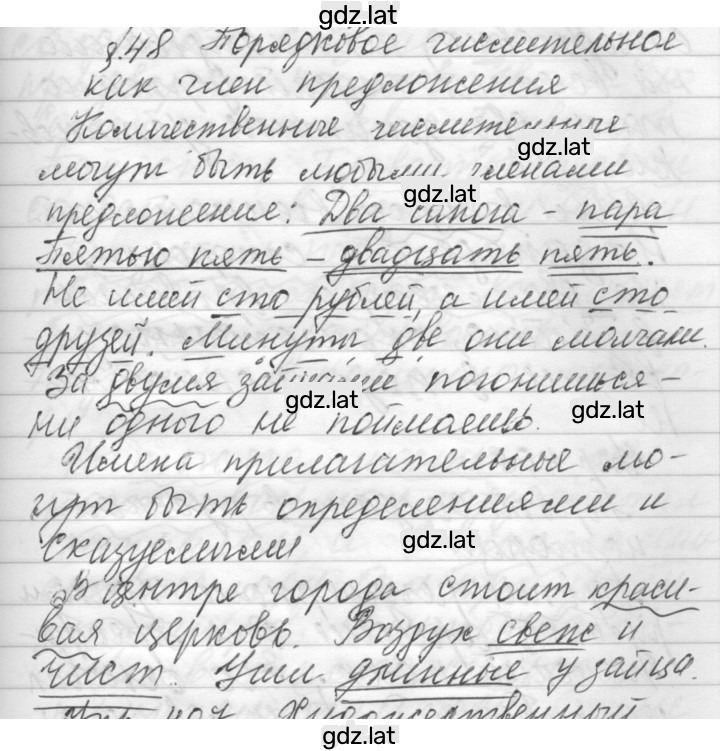 gdz.lat
§.48 Порядковое числительное
как член предложения
Количественные числительные
gdz.lat
могут быть любыми членами
gdz.lat
предложение: Два сапога - пара
Пятью пять - двадцать пять.
Не имей сто рублей, а имей сто
друзей. Минуты две они молчали.
За двумя зайцами погонишься -
gdz.lat
gdz.lat
ни одного не поймаешь.
Имена прилагательные мо-
гут быть определениями и
сказуемыми
gdz.lat
В центре города стоит краси-
вая церковь. Воздух свеж и
чист. Уши длинные у зайца.
Художественный
gdz.lat